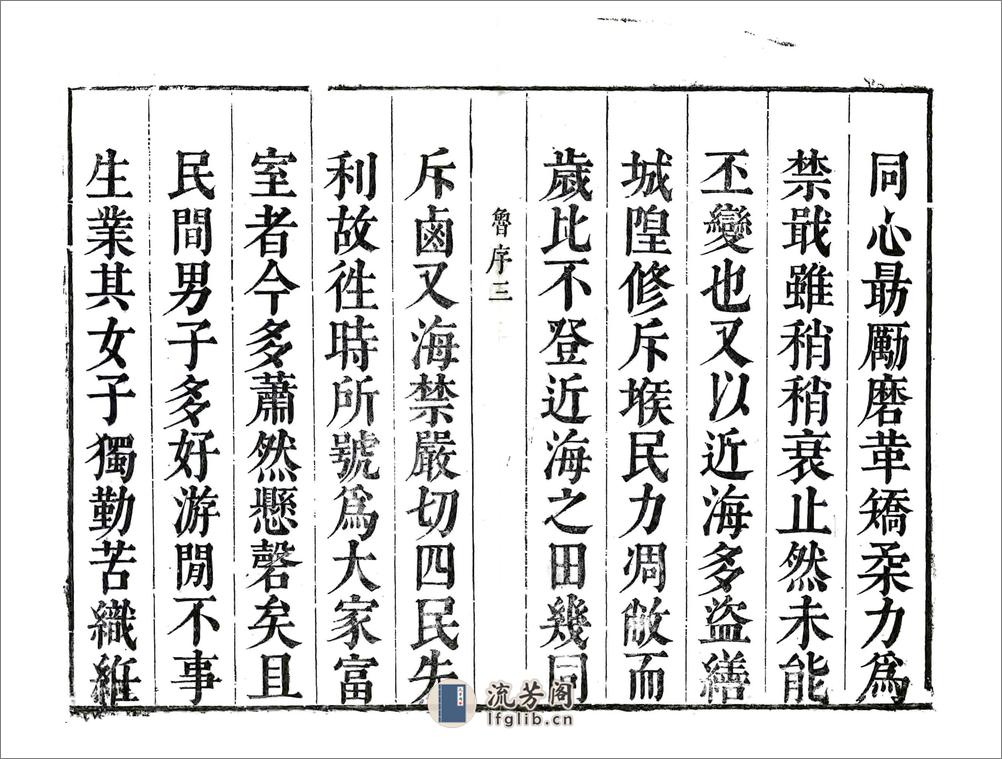 同心勗勵磨革矯柔力爲
禁戢雖稍稍衰止然未能
丕變也又以近海多盜繕
城隍修斥堠民力凋敝而
歲比不登近海之田幾同
魯序三
斥鹵又海禁嚴切四民失
利故徃時所號爲大家富
室者今多蕭然懸磬矣且
民間男子多好游閒不事
生業其女子獨勤苦織維
流芳阁
lfglib.cn